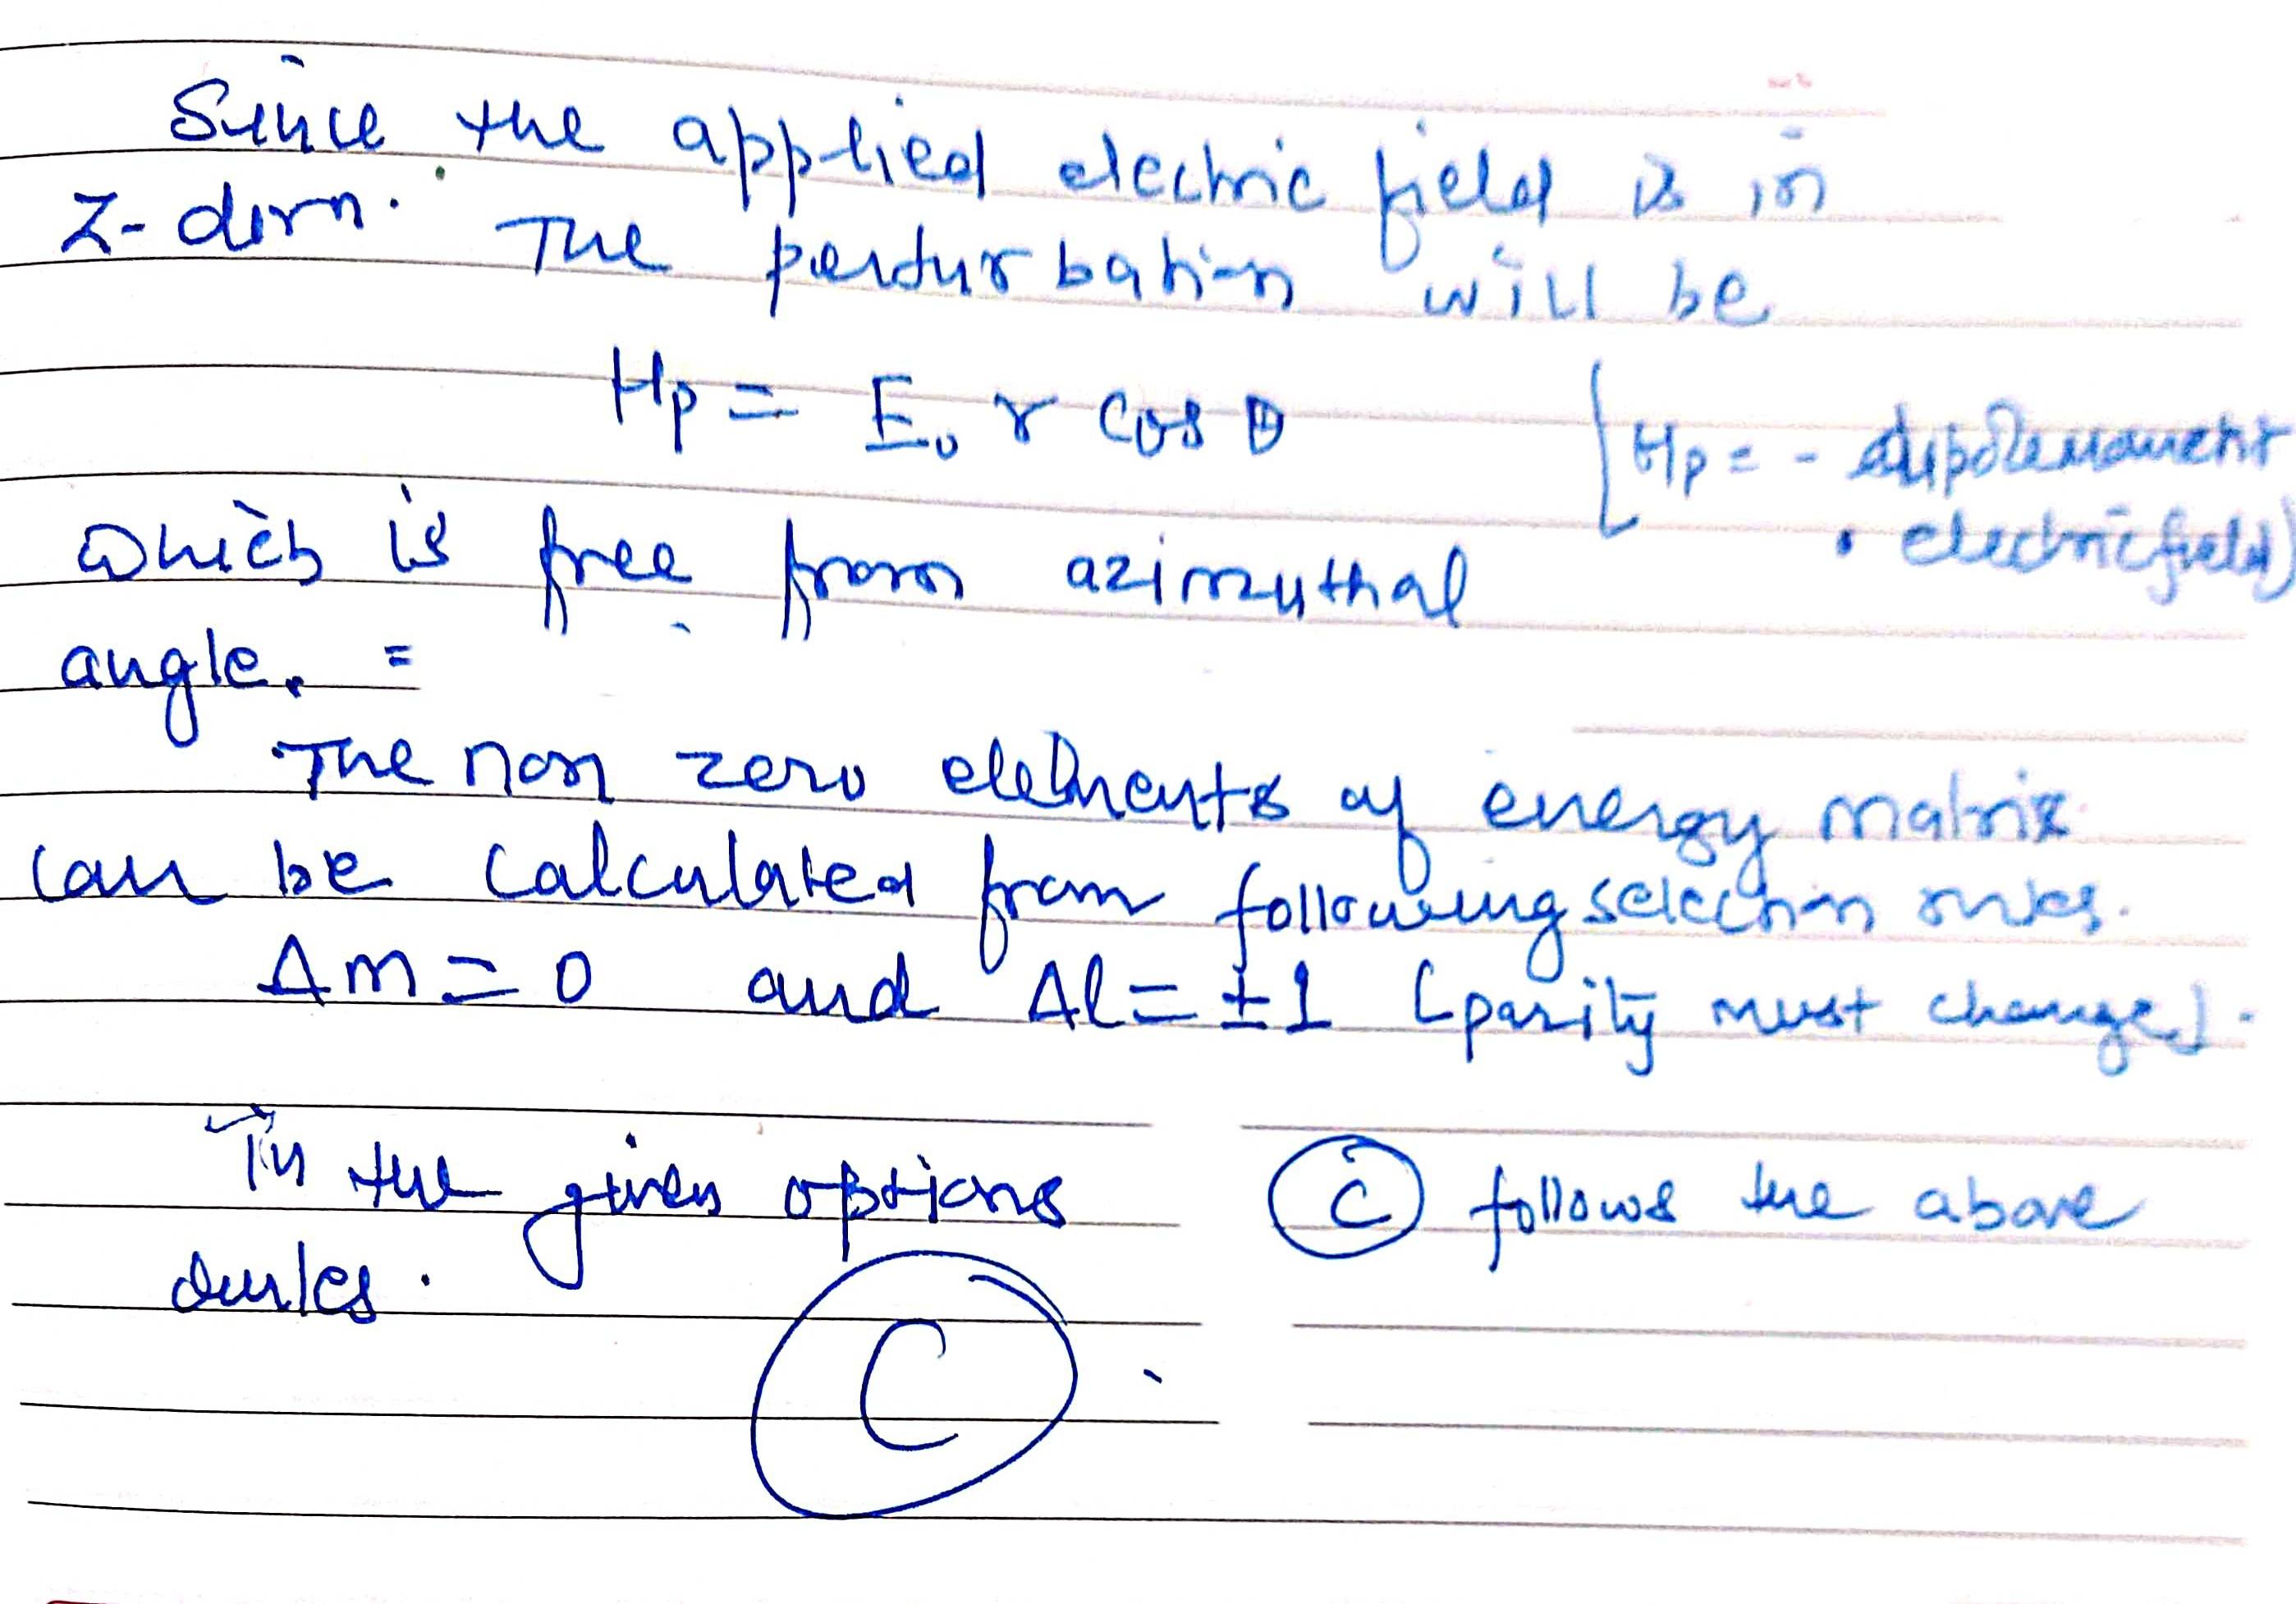 Since the applied electric field is in
Z-dirn. The perturbation will be
Hp = E₀ r cos θ
[Hp = - dipole moment
• electric field)
which is free from azimuthal
angle. =
The non zero elements of energy matrix
can be calculated from following selection rules.
Δm = 0 and Δl = ±1 (parity must change).
In the given options (C) follows the above
rules.
(C)